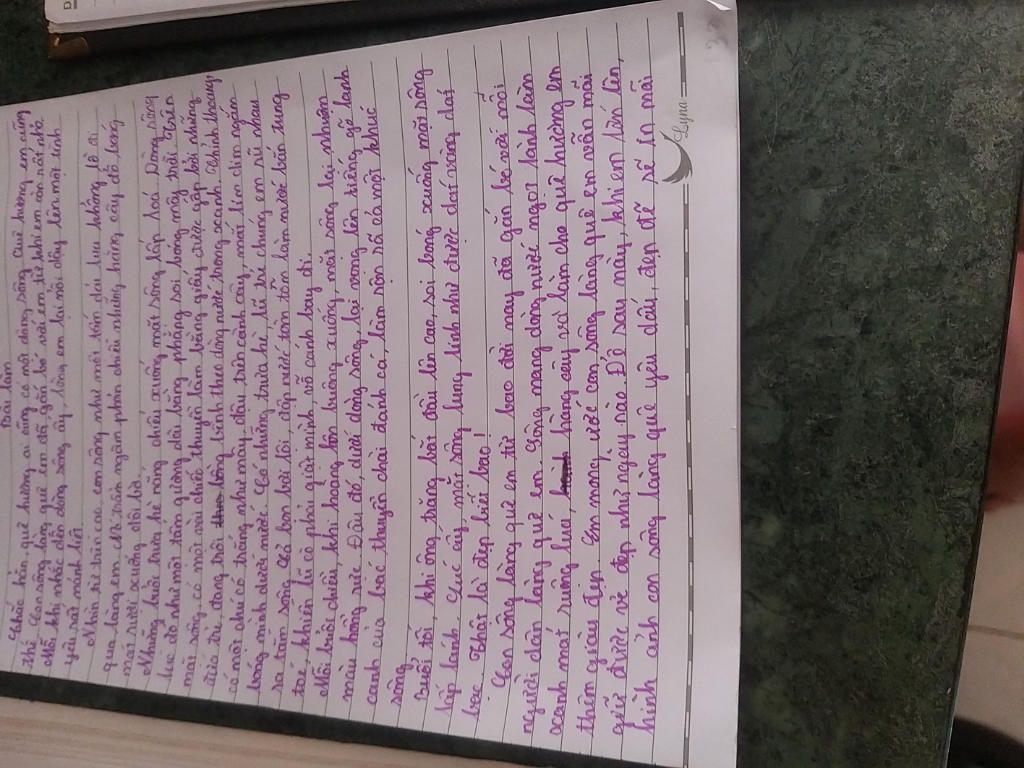 Bài làm
Chắc hẳn quê hương ai cũng có một dòng sông quê hương, em cũng
thế. Con sông làng quê em đã gắn bó với em từ khi em còn rất nhỏ.
Mỗi khi nhắc đến dòng sông ấy, lòng em lại nổi dậy lên một tình
yêu sâu mãnh liệt.
Nhìn từ trên cao, con sông như một dải lụa khổng lồ đi
qua làng em. Mặt ngắm phản chiếu những hàng cây đỏ bóng
mát rượi xuống đôi bờ.
Những buổi trưa hè nắng chiếu xuống mặt sông lấp loá. Dòng sông
lúc đó như một tấm gương dài bằng phẳng soi bóng mây trời. Trên
mặt sông, có một vài chiếc thuyền làm bằng giấy được gấp bởi những
đứa trẻ, đang trôi bồng bềnh theo dòng nước trong xanh. Chính khoảng
có một chú cò trắng như mây đậu trên cành cây, mắt lim dim ngắm
bóng mình dưới nước. Có những trưa hè, lũ trẻ chúng em rủ nhau
ra tắm sông. Cả bọn bơi lội, đập nước tòm tõm làm nước bắn tung
toé, khiến lũ cò phải giật mình vỗ cánh bay đi.
Mỗi buổi chiều, khi hoàng hôn buông xuống, mặt sông lại nhuộm
màu hồng rực. Đâu đó, dưới dòng sông, lại vang lên tiếng gõ lanh
canh của bác thuyền chài đánh cá, làm rộn rã cả một khúc
sông.
Buổi tối, khi ông trăng bắt đầu lên cao, soi bóng xuống mặt sông
lấp lánh. Lúc ấy, mặt sông lung linh như được dát vàng dát
bạc. Thật là đẹp biết bao!
Con sông làng quê em từ bao đời nay đã gắn bó với mỗi
người dân làng quê em. Sông mang dòng nước ngọt lành làm
xanh mát ruộng lúa, hàng cây và làm cho quê hương em
thêm giàu đẹp. Em mong ước con sông làng quê em vẫn mãi
giữ được vẻ đẹp như ngày nào. Để sau này, khi em lớn lên,
hình ảnh con sông làng quê yêu dấu, đẹp đẽ sẽ in mãi
Lyna